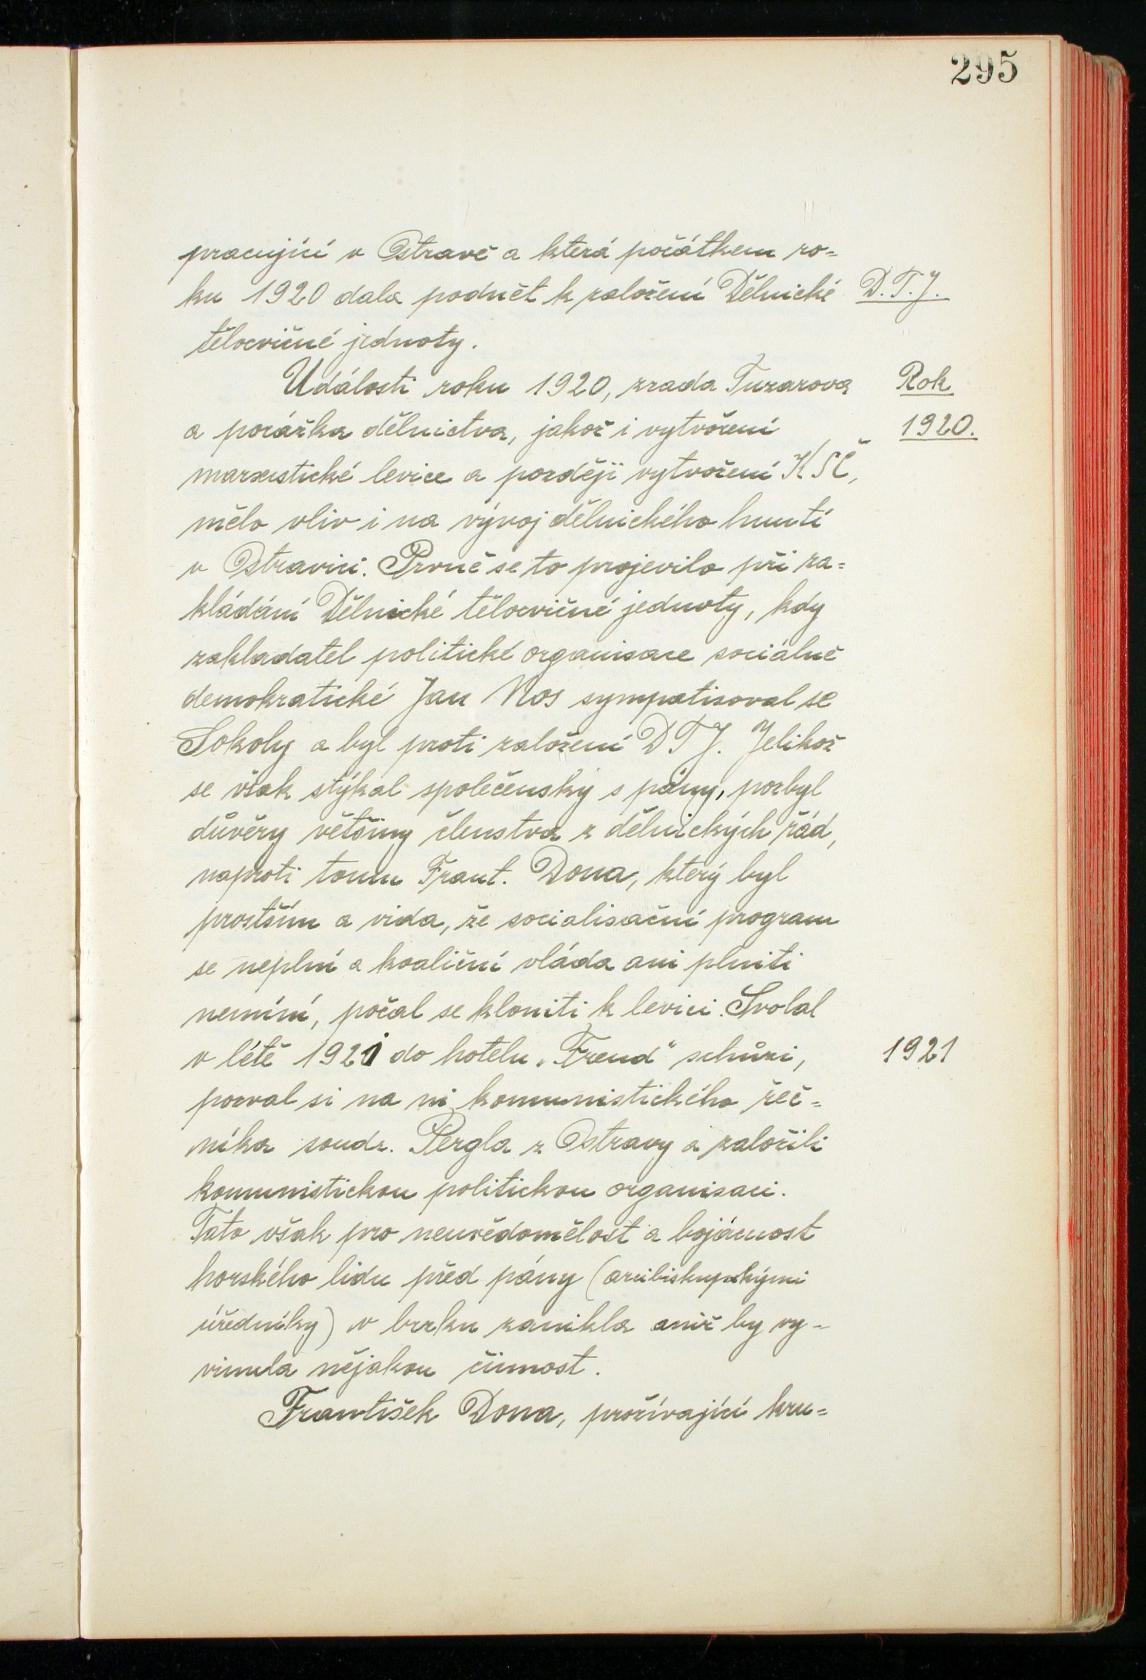 295
pracující v Ostravě a která počátkem ro=
ku 1920 dala podnět k založení Dělnické
D. T. J.
tělocvičné jednoty.
Události roku 1920, zrada Tuzarova
Rok
a porážka dělnictva, jakož i vytvoření
1920.
marxistické levice a později vytvoření KSČ,
mělo vliv i na vývoj dělnického hnutí
v Ostravici. Prvně se to projevilo při za=
kládání Dělnické tělocvičné jednoty, kdy
zakladatel politické organisace sociálně
demokratické Jan Nos sympatisoval se
Sokoly a byl proti založení DTJ. Jelikož
se však stýkal společensky s pány, pozbyl
důvěry většiny členstva z dělnických řad,
naproti tomu Frant. Dona, který byl
prostším a vida, že socialisační program
se neplní a koaliční vláda ani plniti
nemíní, počal se kloniti k levici. Svolal
v létě 1921 do hotelu „Freud" schůzi,
1921
pozval si na ni komunistického řeč=
níka soudr. Pergla z Ostravy a založili
komunistickou politickou organisaci.
Tato však pro neuvědomělost a bojácnost
horského lidu před pány (arcibiskupskými
úředníky) v brzku zanikla aniž by vy-
vinula nějakou činnost.
František Dona, prožívající kru=